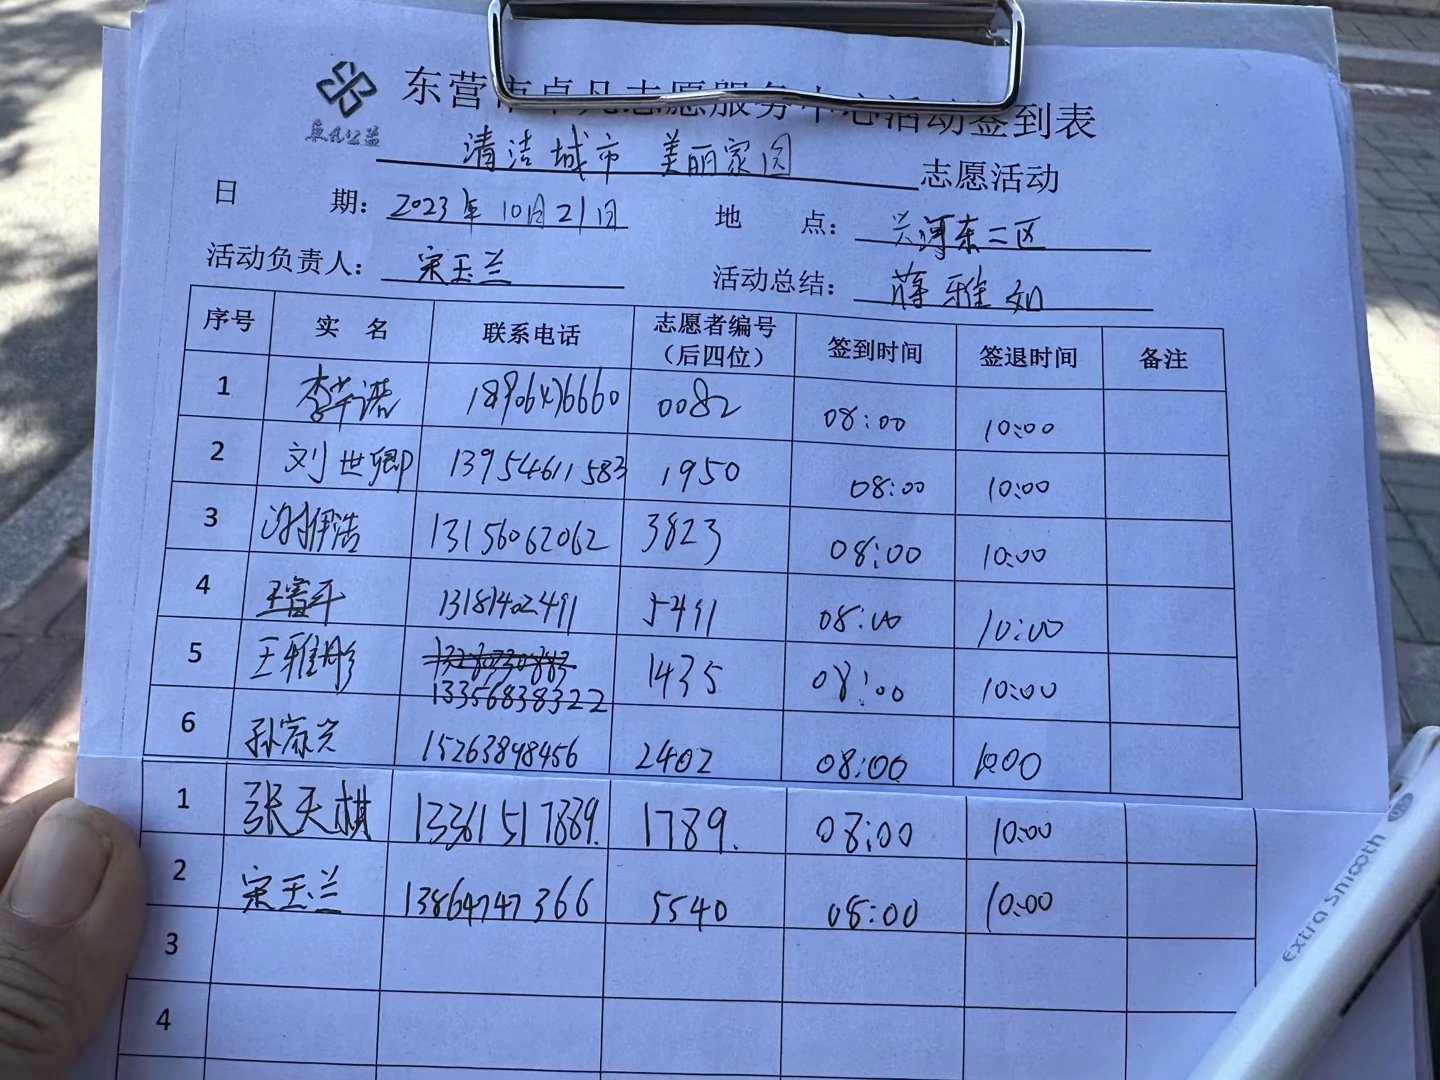 东营市卓凡志愿服务中心活动签到表
卓凡公益
清洁城市 美丽家园 志愿活动
日 期：2023年10月21日 地 点：兴河东二区
活动负责人：宋玉兰 活动总结：蒋雅如
序号 实 名 联系电话 志愿者编号（后四位） 签到时间 签退时间 备注
1 0082 08:00 10:00
2 刘世卿 13954611583 1950 08:00 10:00
3 谢伊浩 13156062062 3823 08:00 10:00
4 13181402491 5491 08:00 10:00
5 王雅彤 13356838322 1435 08:00 10:00
6 15263898456 2402 08:00 10:00
1 张天棋 13361517889. 1789. 08:00 10:00
2 宋玉兰 13864747366 5540 08:00 10:00
3
4
Extra Smooth